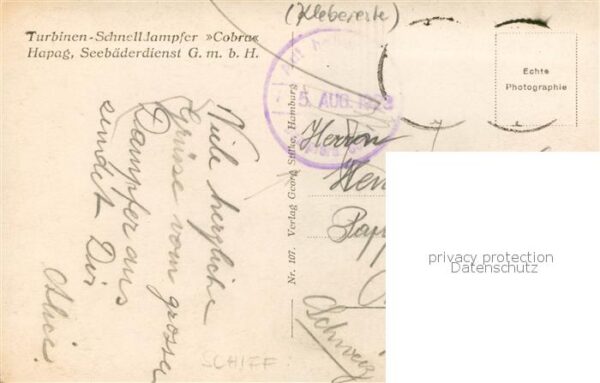 (Klebereste)
Turbinen-Schnelldampfer »Cobra«
Hapag, Seebäderdienst G. m. b. H.
5. AUG. 1933
Echte
Photographie
Viele herzliche
Grüsse vom grossen
Dampfer aus
sendet Dir
Alice.
Nr. 107. Verlag Georg Stilke, Hamburg
Herrn
Schweiz
SCHIFF.
privacy protection
Datenschutz